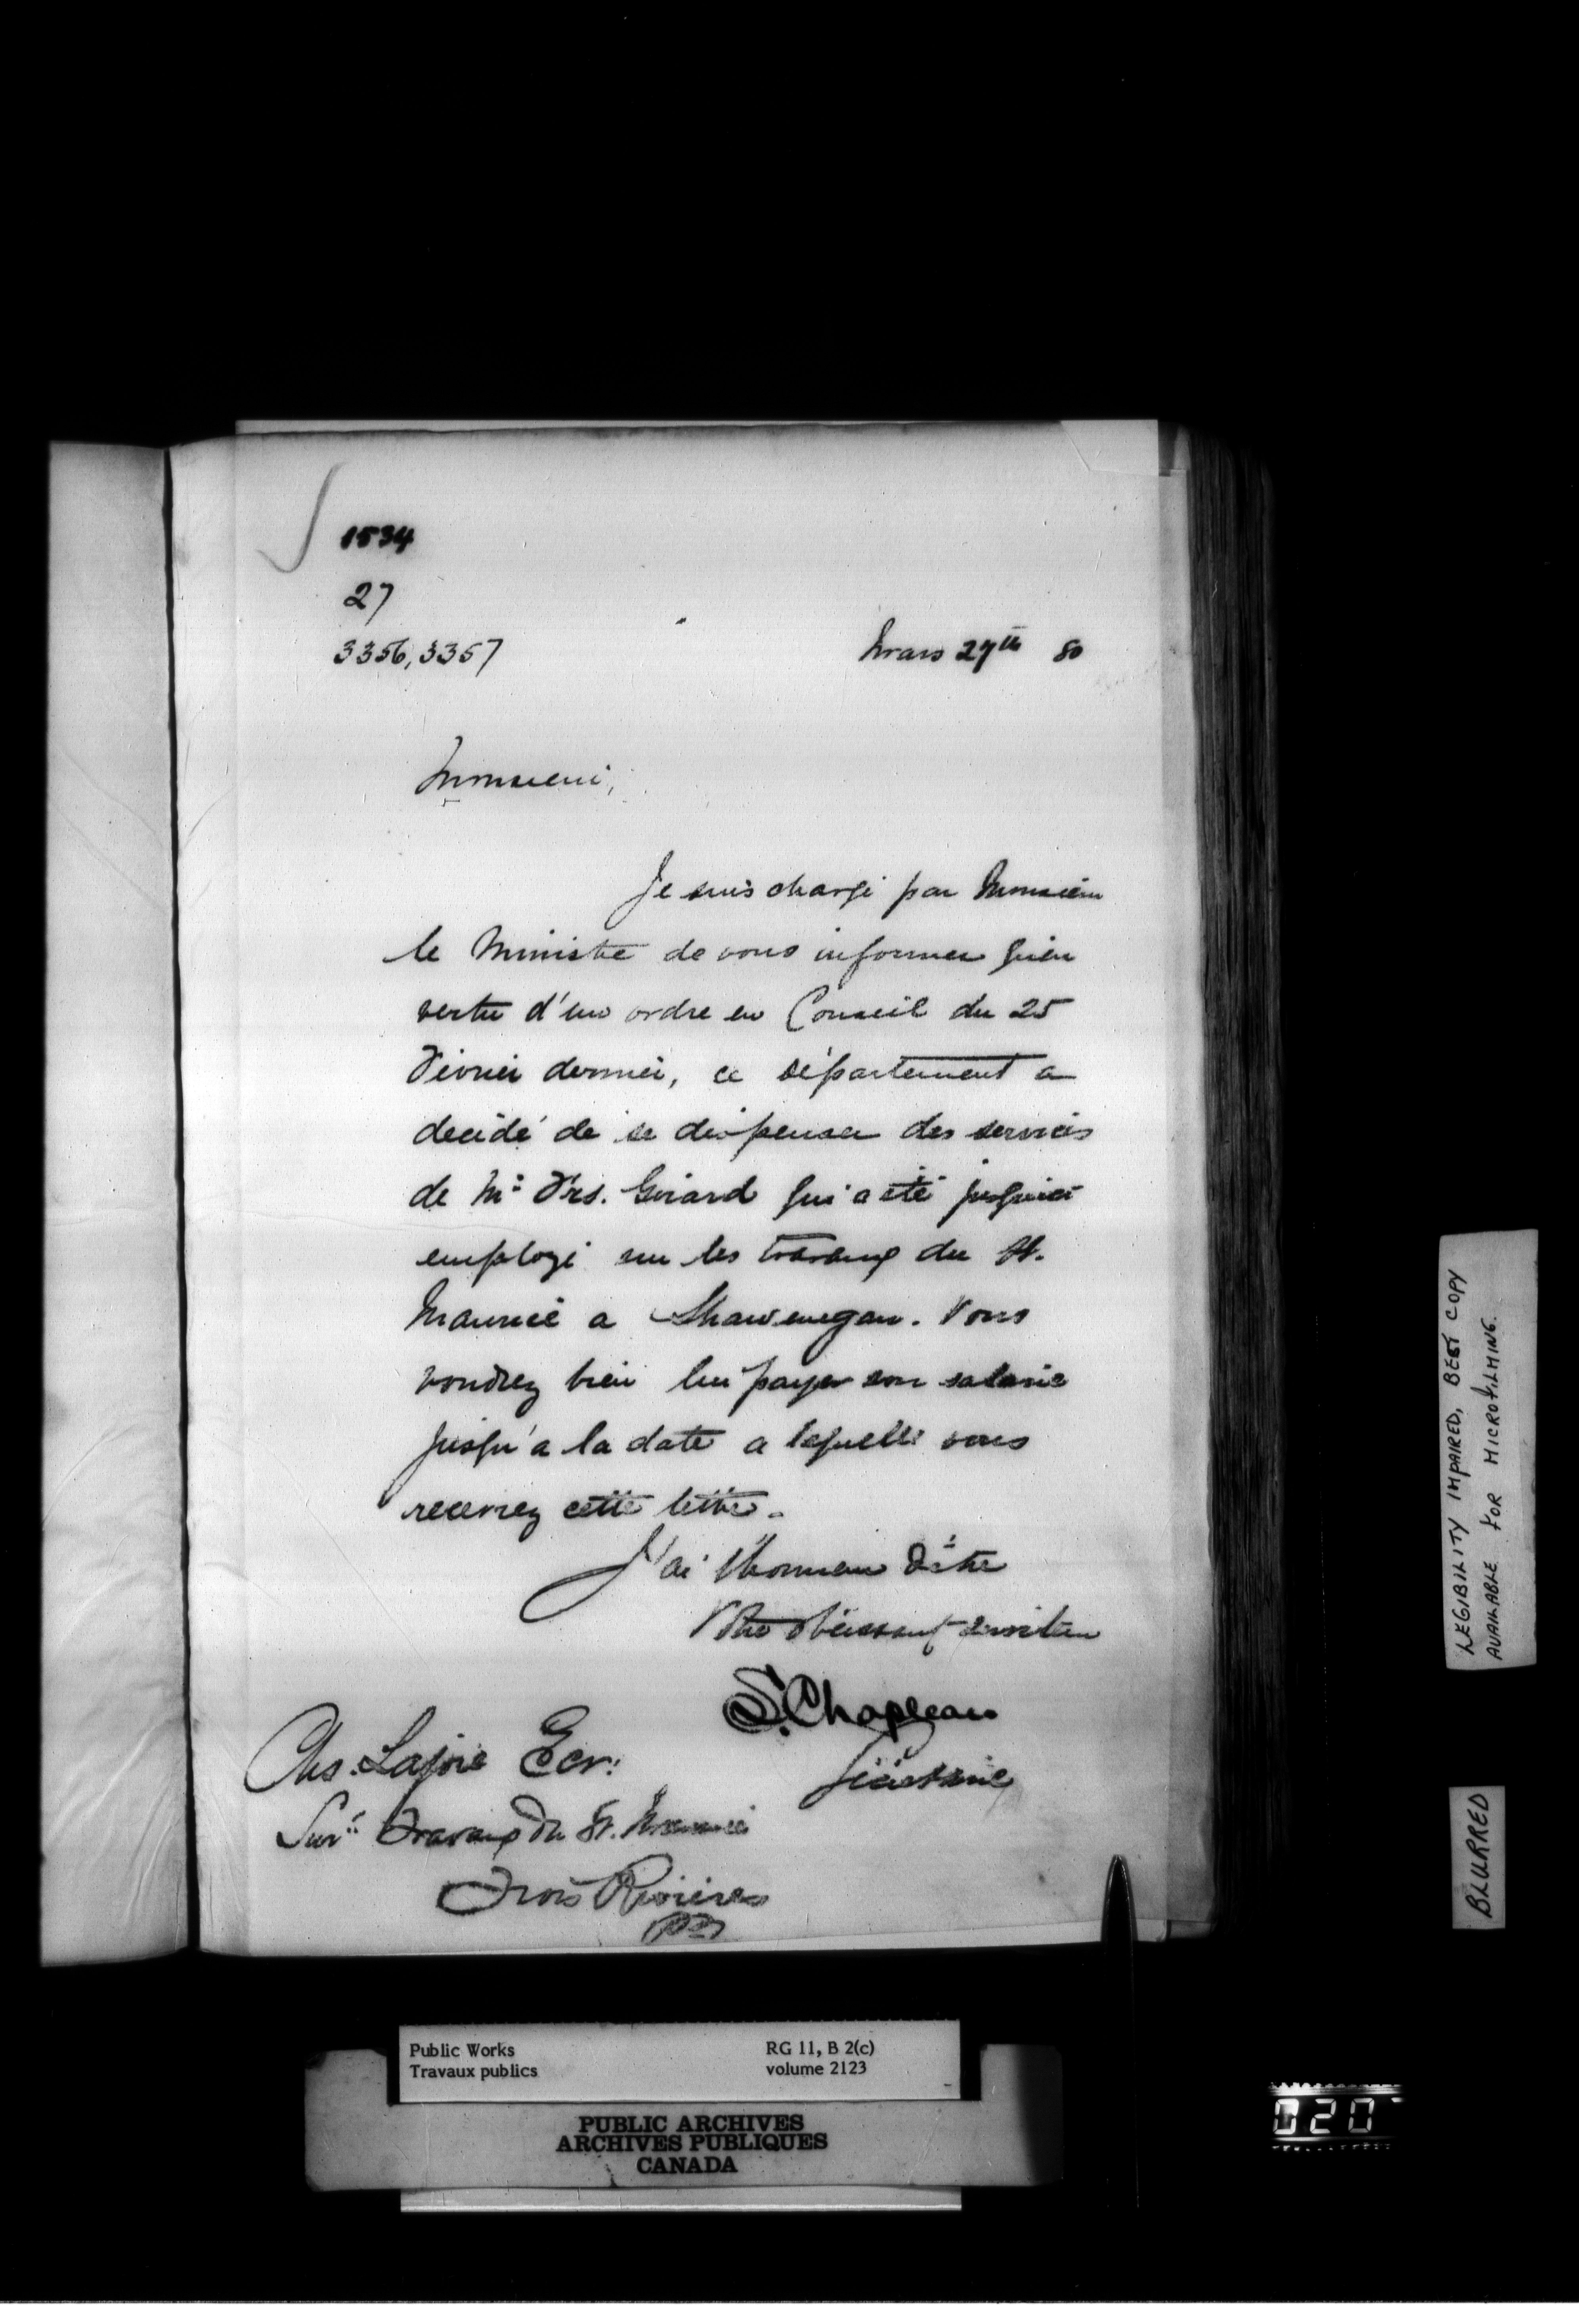 1534
27
3356, 3357
Mars 27th 80
Monsieur,
Je suis chargé par Monsieur
le Ministre de vous informer qu'en
vertu d'un ordre en Conseil du 25
Février dernier, ce département a
decidé de se dispenser des services
de Mr Frs. Girard qui a été jusqu'ici
employé sur les travaux du St.
Maurice a Shawenegan. Vous
voudrez bien lui payer son salaire
jusqu'a la date a laquelle vous
recevrez cette lettre.
J'ai l'honneur d'être
Votre obéissant serviteur
S. Chapleau
Secrétaire
Chs. Lajoie Ecr.
Surt Travaux du St. Maurice
Trois Rivières
PQ
LEGIBILITY IMPAIRED, BEST COPY
AVAILABLE FOR MICROFILMING.
BLURRED
Public Works RG 11, B 2(c)
Travaux publics volume 2123
PUBLIC ARCHIVES
ARCHIVES PUBLIQUES
CANADA
020